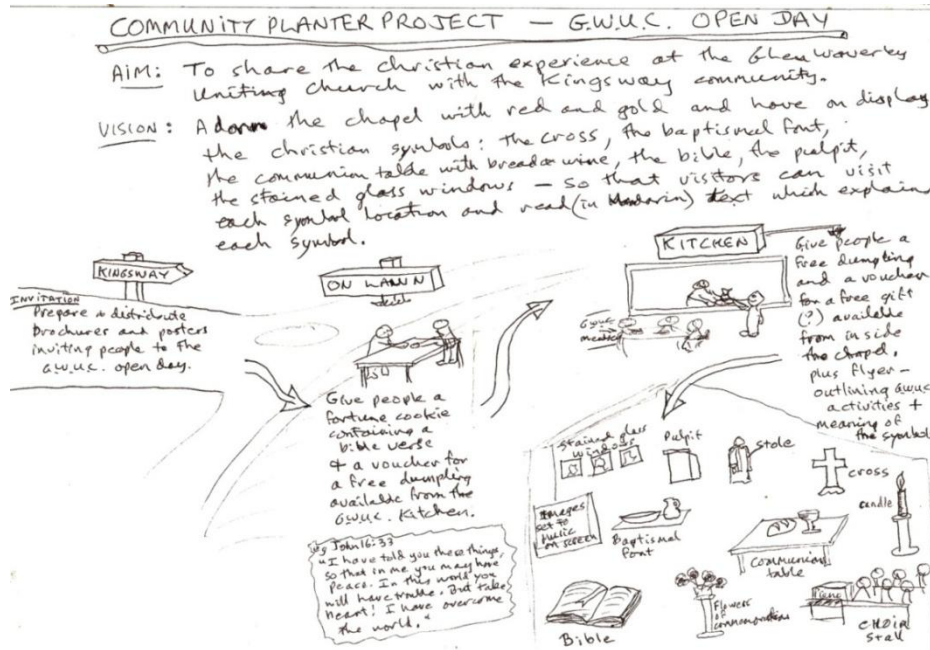 COMMUNITY PLANTER PROJECT – G.W.U.C. OPEN DAY
AIM: To share the christian experience at the Glen Waverley
Uniting church with the Kingsway community.
VISION: Adorn the chapel with red and gold and have on display
the christian symbols: the cross, the baptismal font,
the communion table with bread & wine, the bible, the pulpit,
the stained glass windows – so that visitors can visit
each symbol location and read (in Mandarin) text which explains
each symbol.
KINGSWAY
INVITATION
Prepare & distribute
brochures and posters
inviting people to the
G.W.U.C. open day.
ON LAWN
Give people a
fortune cookie
containing a
bible verse
& a voucher for
a free dumpling
available from the
G.W.U.C. Kitchen.
eg John 16:33
"I have told you these things,
so that in me you may have
peace. In this world you
will have trouble. But take
heart! I have overcome
the world."
KITCHEN
G.W.U.C.
Give people a
free dumpling
and a voucher
for a free gift
(?) available
from inside
the chapel,
plus flyer –
outlining GWUC
activities +
meaning of
the symbols
Stained glass
windows
Pulpit
stole
cross
candle
Images
set to
music
on screen
Baptismal
font
Communion
table
Bible
Flowers
of
commemoration
Piano
CHOIR
Stall